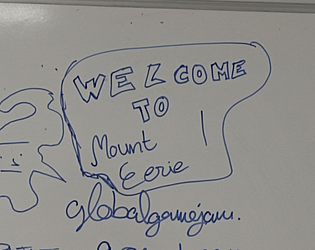 WELCOME
TO
Mount
Eerie
globalgamejam.